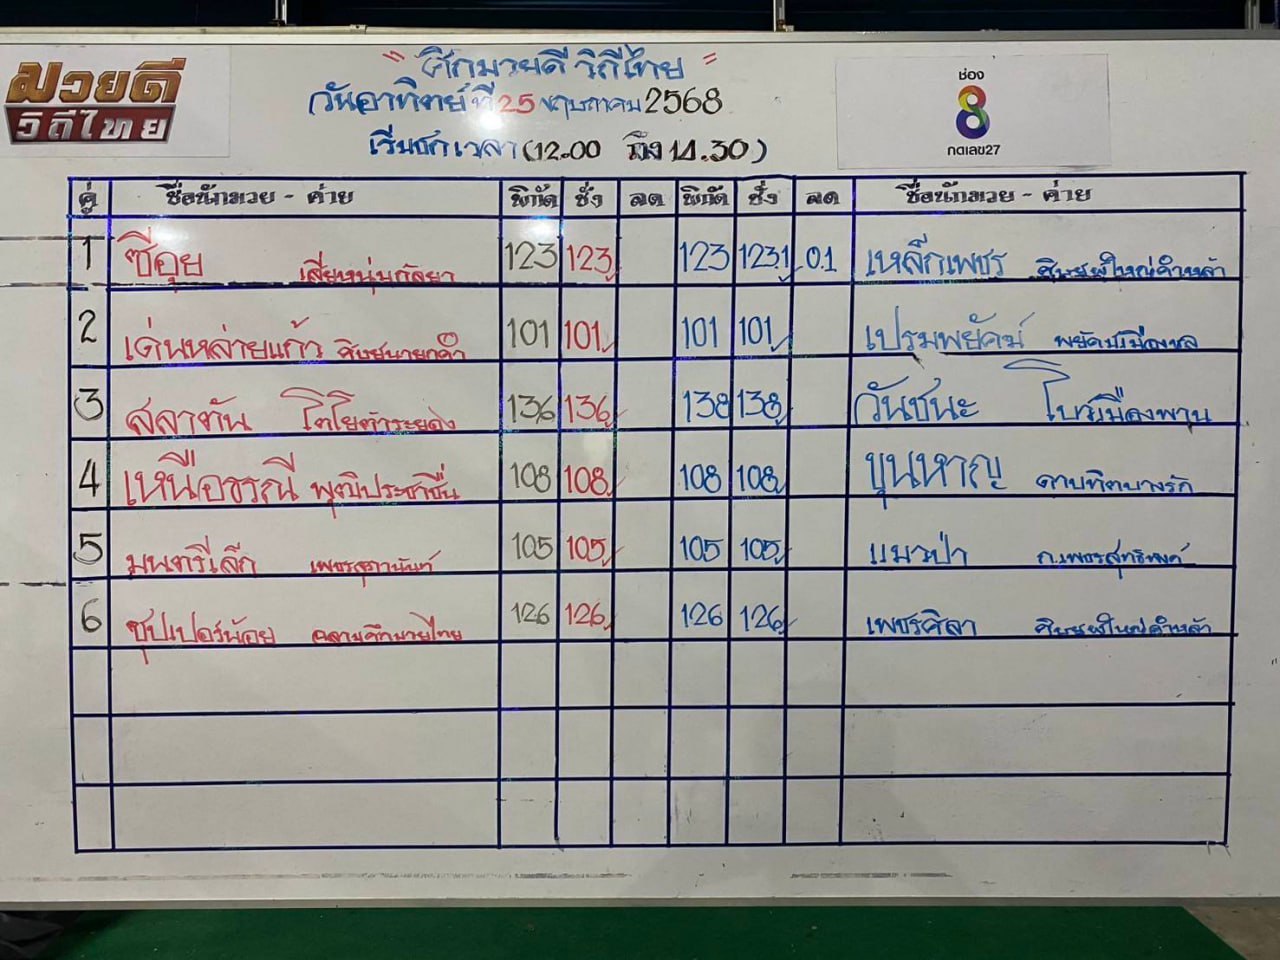 มวยดี
วิถีไทย
" ศึกมวยดี วิถีไทย "
วันอาทิตย์ที่ 25 พฤษภาคม 2568
เริ่มชกเวลา (12.00 ถึง 14.30)
ช่อง
8
กดเลข27
คู่ ชื่อนักมวย - ค่าย พิกัด ชั่ง ลด พิกัด ชั่ง ลด ชื่อนักมวย - ค่าย
1 ซีอุย เสี่ยหนุ่มกัลยา 123 123 123 123.1 0.1 เหล็กเพชร ศิษย์ผู้ใหญ่คำหล้า
2 เด่นหล่ายแก้ว ศิษย์นายกคำ 101 101 101 101 เปรมพยัคฆ์ พยัคฆ์เมืองชล
3 สลาตัน โตโยต้าระยอง 136 136 138 138 วันชนะ โบว์เมืองพาน
4 เหนือธรณี พุฒิประชาชื่น 108 108 108 108 ขุนหาญ ดาบทิตบางรัก
5 มนตรีเล็ก เพชรสุภานันท์ 105 105 105 105 แมวป่า ก.เพชรสุทธิพงศ์
6 ซุปเปอร์น้อย ฉลามศึกมวยไทย 126 126 126 126 เพชรศิลา ศิษย์ผู้ใหญ่คำหล้า